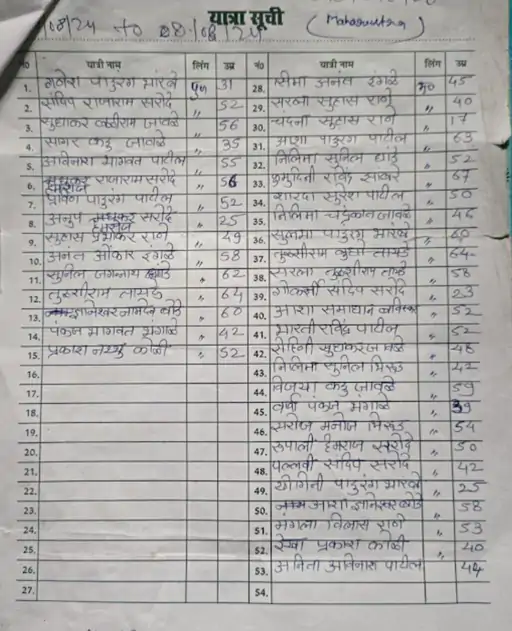 /08/24 to 08/08/24
यात्रा सूची
(Maharashtra)
न० यात्री नाम लिंग उम्र
1. गणेश पांडुरंग भारंबे पु 31
2. संदिप राजाराम सरोदे " 52
3. सुधाकर जावळे " 56
4. सागर कडू जावळे " 35
5. अविनाश भागवत पाटील " 55
6. हेमराज राजाराम सरोदे " 56
7. प्रविण पांडुरंग पाटील " 52
8. अनुप हेमराज सरोदे " 25
9. सुहास प्रभाकर राणे " 49
10. अनंत ओंकार इंगळे " 58
11. सुनिल जगन्नाथ " 62
12. तुळशीराम तायडे " 64
13. ज्ञानेश्वर नामदेव " 60
14. पंकज भागवत भंगाळे " 42
15. प्रकाश नथ्थु कोळी " 52
16.
17.
18.
19.
20.
21.
22.
23.
24.
25.
26.
27.
न० यात्री नाम लिंग उम्र
28. सिमा अनंत इंगळे 45
29. सरला सुहास राणे " 40
30. चंदना सुहास राणे " 17
31. आशा पांडुरंग पाटील " 63
32. निलिमा सुनिल " 52
33. कुमुदिनी रविंद्र झांबरे " 67
34. शारदा सुरेश पाटील " 50
35. निलिमा चंद्रकांत जावळे " 46
36. सुलभा पांडुरंग भारंबे " 60
37. तुळशीराम तायडे " 64
38. सरला तुळशीराम तायडे " 58
39. गोकर्णा संदिप सरोदे " 23
40. आशा समाधान " 52
41. भारती रविंद्र पाटील " 52
42. रोहिनी सुधाकर जावळे " 48
43. निलिमा सुनिल भिरूड " 42
44. विजया कडू जावळे " 59
45. वर्षा पंकज भंगाळे " 39
46. सरोज मनोज भिरूड " 54
47. रुपाली हेमराज सरोदे " 50
48. पल्लवी संदिप सरोदे " 42
49. योगिनी पांडुरंग भारंबे " 25
50. आशा ज्ञानेश्वर " 58
51. मंगला विलास राणे " 53
52. रेखा प्रकाश कोळी " 40
53. अनिता अविनाश पाटील 44
54.